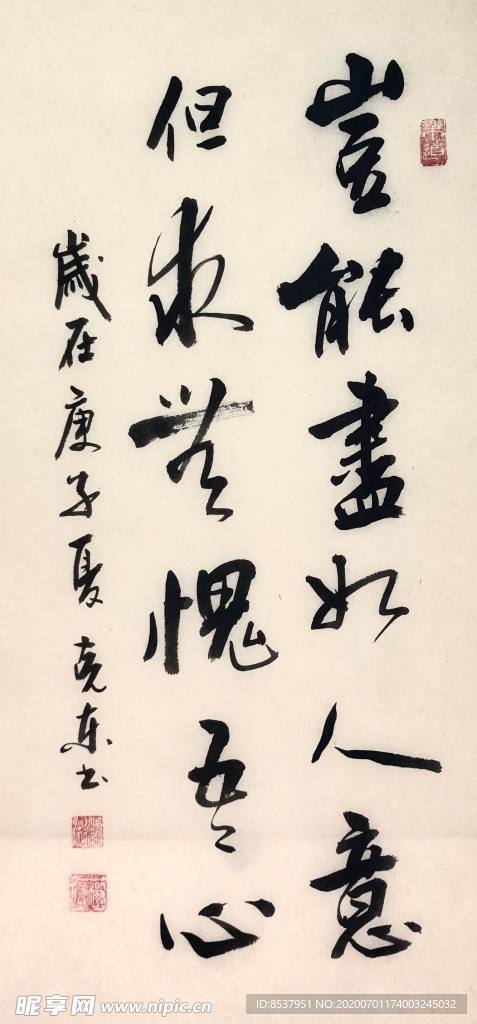 豈能盡如人意
但求無愧吾心
歲在庚子夏 克東书
昵享网 www.nipic.cn
ID:8537951 NO:20200701174003245032